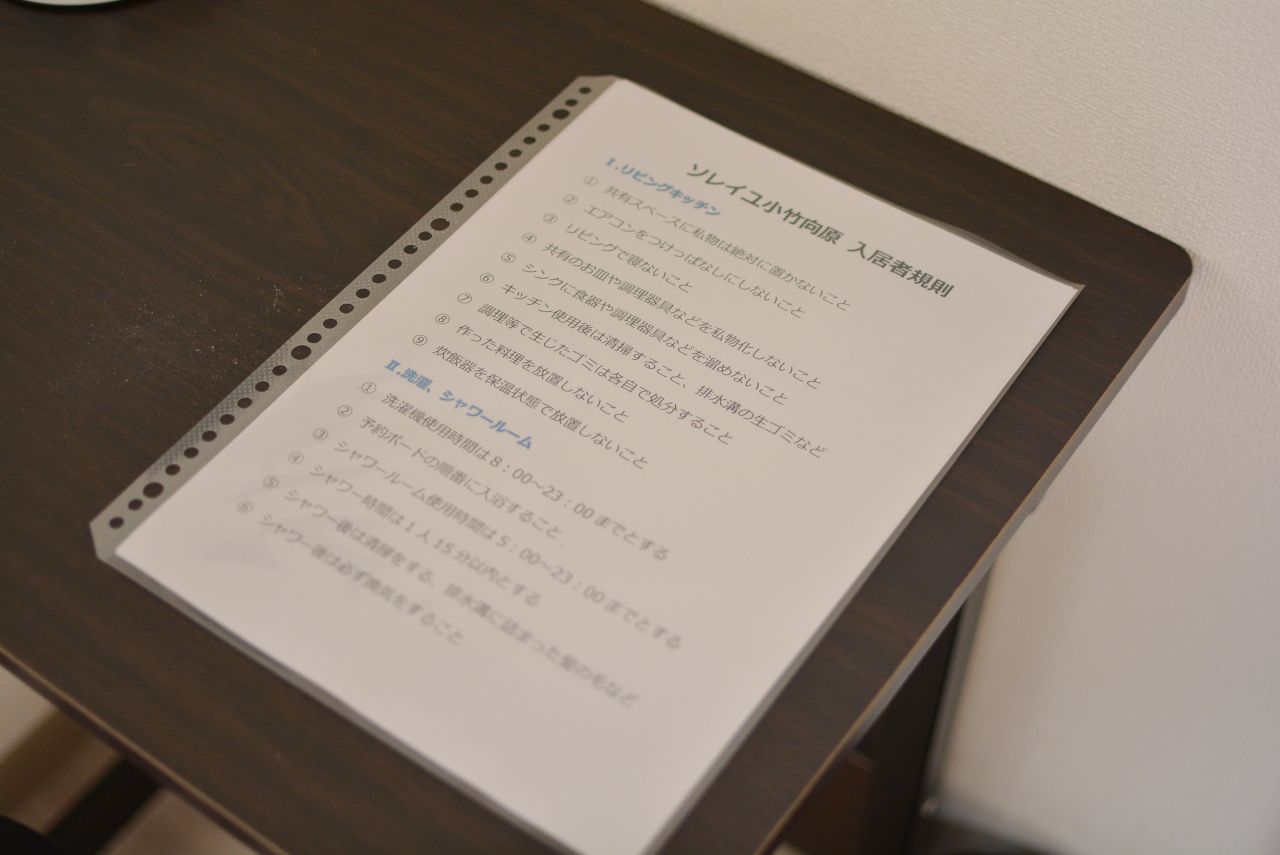 ソレイユ小竹向原 入居者規則
Ⅰ.リビングキッチン
① 共有スペースに私物は絶対に置かないこと
② エアコンをつけっぱなしにしないこと
③ リビングで寝ないこと
④ 共有のお皿や調理器具などを私物化しないこと
⑤ シンクに食器や調理器具などを溜めないこと
⑥ キッチン使用後は清掃すること、排水溝の生ゴミなど
⑦ 調理等で生じたゴミは各自で処分すること
⑧ 作った料理を放置しないこと
⑨ 炊飯器を保温状態で放置しないこと
Ⅱ.洗濯、シャワールーム
① 洗濯機使用時間は8：00～23：00までとする
② 予約ボードの順番に入浴すること.
③ シャワールーム使用時間は5：00～23：00までとする
④ シャワー時間は1人15分以内とする
⑤ シャワー後は清掃をする、排水溝に詰まった髪の毛など
⑥ シャワー後は必ず換気をすること